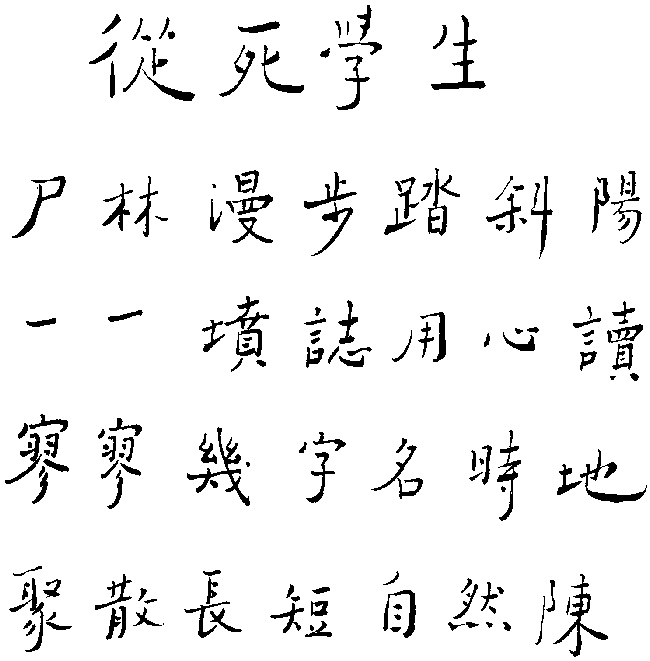 從死學生
尸林漫步踏斜陽
一一墳誌用心讀
寥寥幾字名時地
聚散長短自然陳